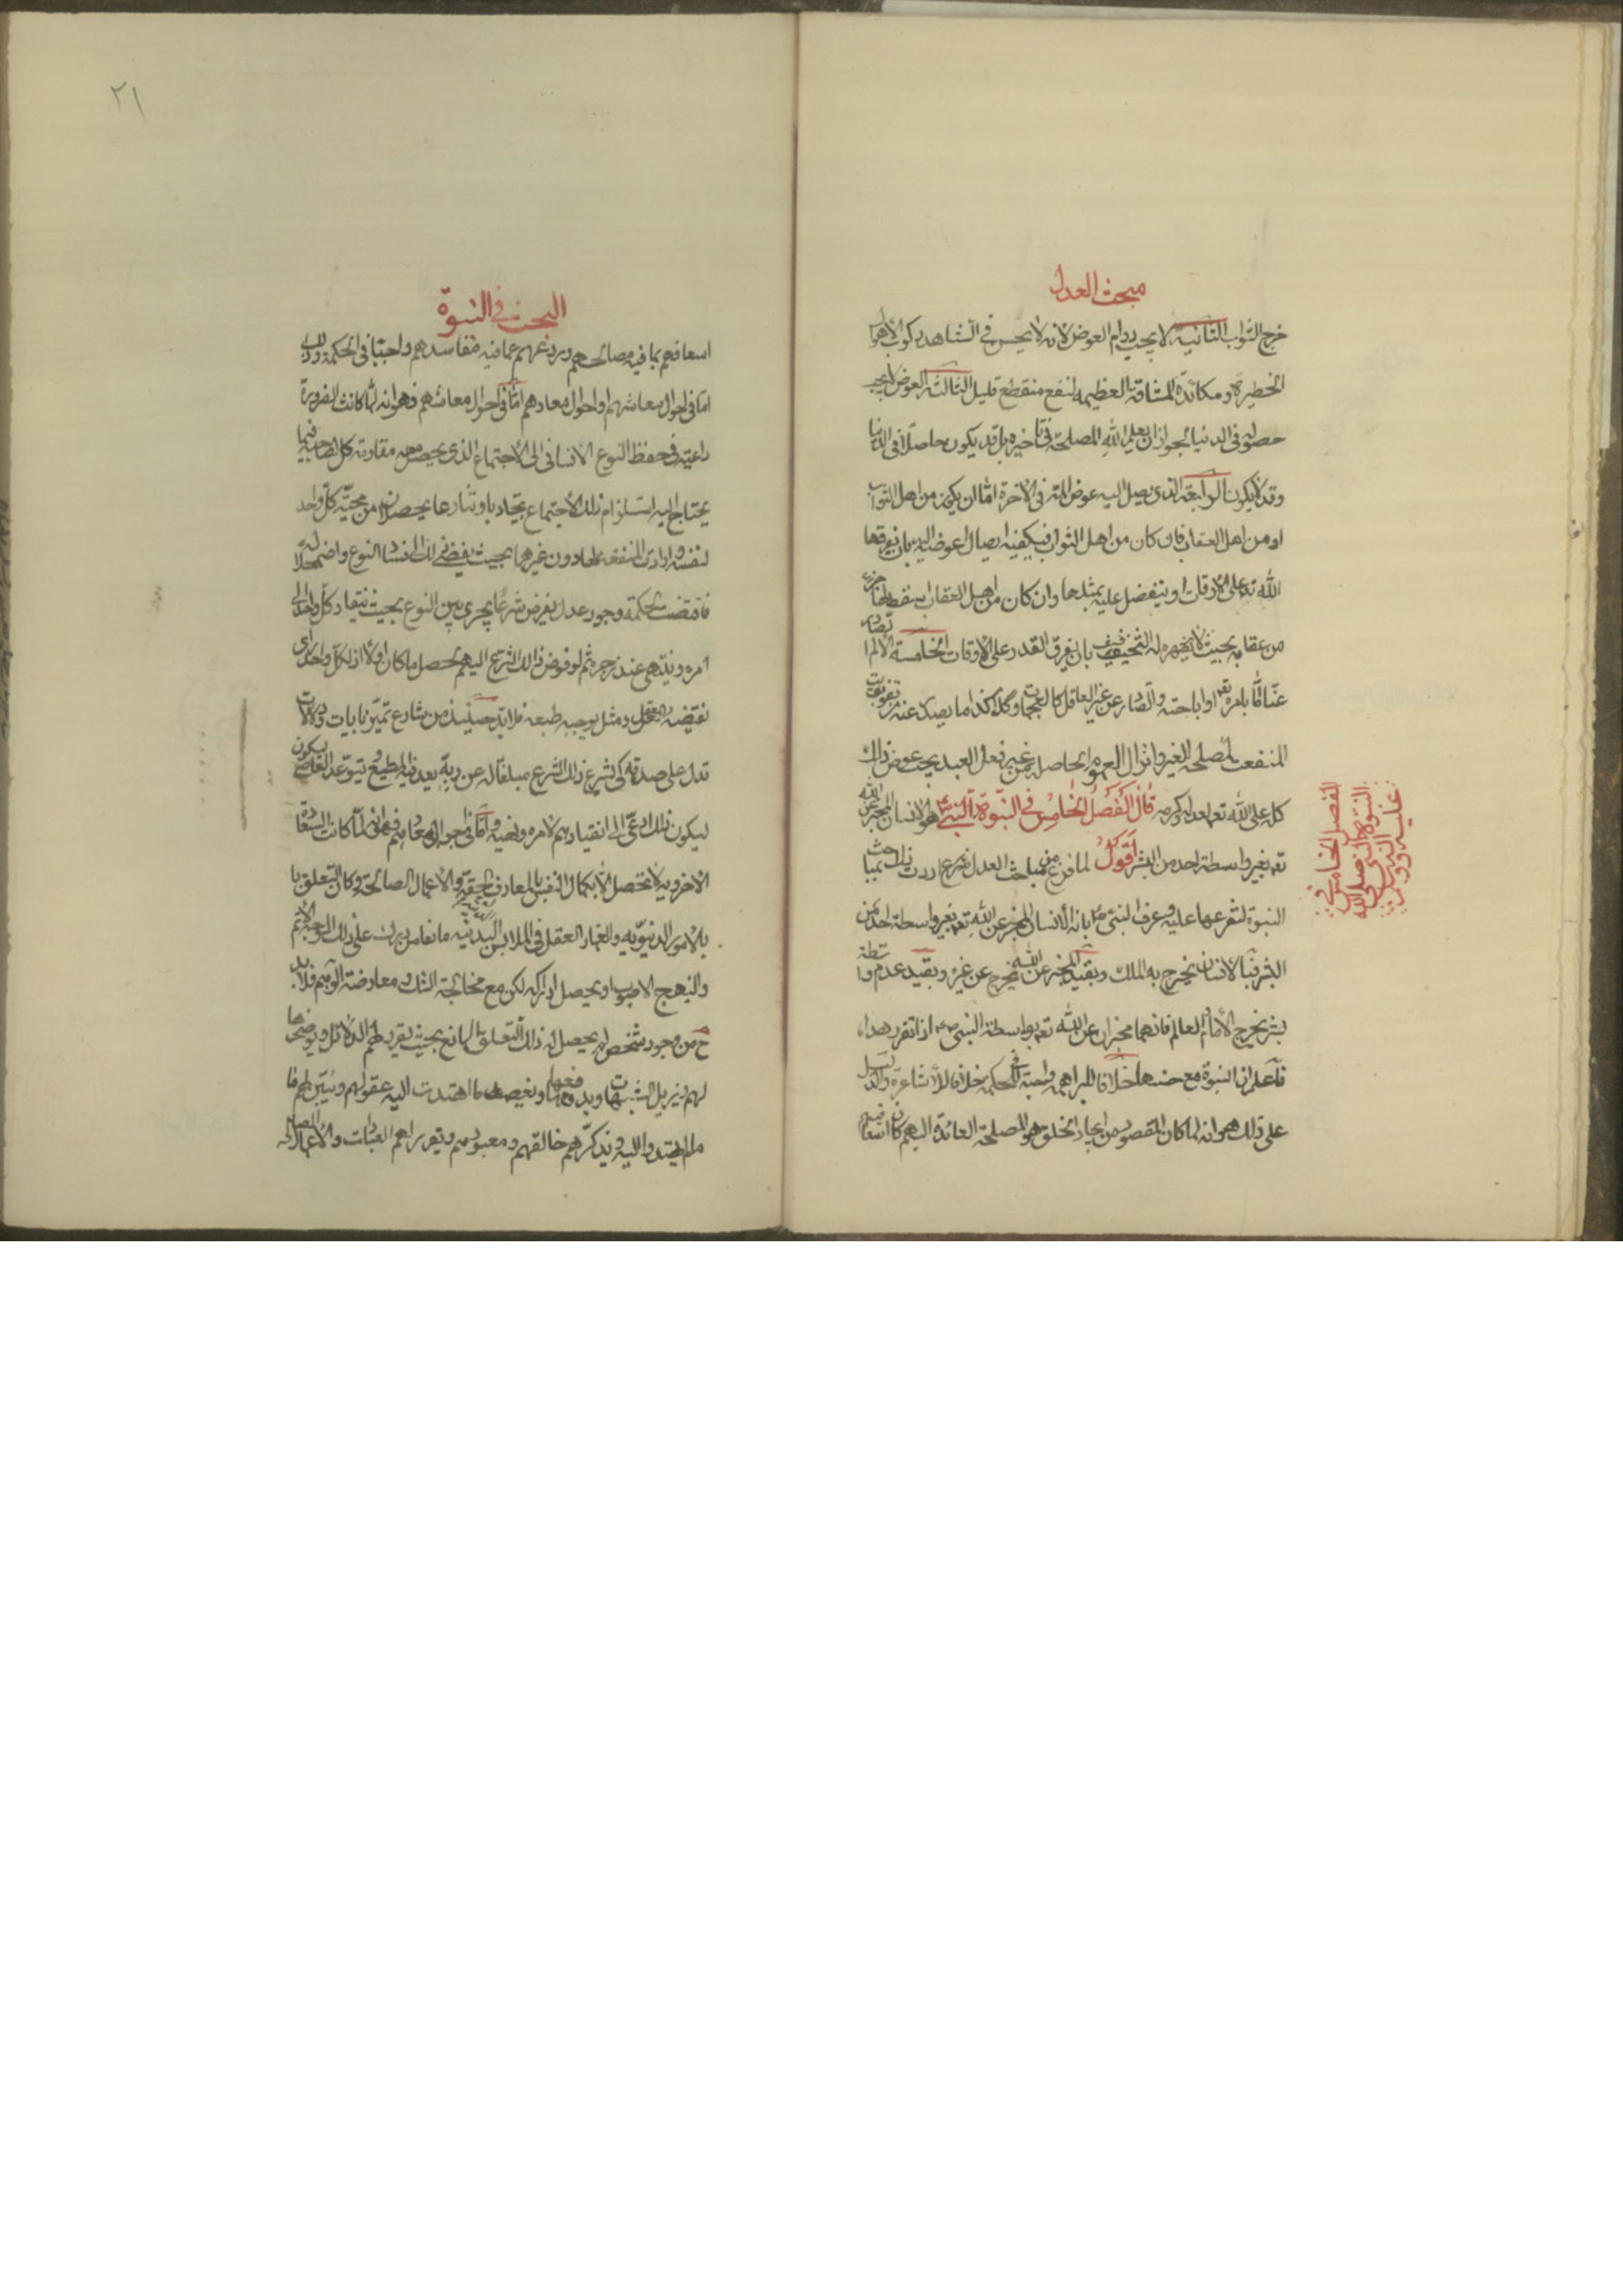 مبحث العدل
خرج الثواب الثانية لا يجب دوام العوض لانه لا يحسن في الشاهد ركوب الأهوال
الخطيرة ومكابدة المشاق العظيمة لنفع منقطع قليل الثالثة العوض لا يجب
حصوله في الدنيا لجواز ان يعلم الله المصلحة في تاخيره بل قد يكون حاصلا في الدنيا
وقد لا يكون الرابعة الذي يصل اليه عوض المه في الآخرة اما ان يكون من اهل الثواب
او من اهل العقاب فان كان من اهل الثواب فيكفيه ايصال اعواضه اليه بان يفرقها
الله تعالى على الاوقات او يتفضل عليه بمثلها وان كان من اهل العقاب اسقط بها جزء
من عقابه بحيث لا يظهر له التخفيف بان يفرق القدر على الاوقات الخامسة الالم الصادر
عنا اما بامره تع او اباحته والصادر عن غير العاقل كالعجماوات وكذا ما يصدر عنه من تفويت
المنفعت لمصلحة الغير وانزال الغموم الحاصلة من غير فعل العبد يجب عوض ذلك
كله على الله تع لعدله وكرمه قال الفصل الخامس في النبوة النبي ص هو الانسان المخبر عن الله
تع بغير واسطة احد من البشر اقول لما فرغ من مباحث العدل شرع اردف ذلك بمباحث
النبوة لتفرعها عليه وعرف النبي ص بانه الانسان المخبر عن الله تع بغير واسطة احد من
البشر فبالانسان يخرج به الملك وبقيد المخبر عن الله يخرج عن غيره وبقيد عدم واسطة
بشر يخرج الأمام والعالم فانهما مخبران عن الله تع بواسطة النبي ص اذا تقرر هذا
فاعلم ان النبوة مع حسنها خلافا للبراهمة واجبة في الحكمة خلافا للأشاعرة والدليل
على ذلك هو انه لما كان المقصود من ايجاد الخلق هو المصلحة العائدة اليهم كان اسعافهم
الفصل الخامس في
النبوة النبي صلى الله
عليه
البحث في النبوة
اسعافهم بما فيه مصالحهم وردعهم عما فيه مفاسدهم واجبا في الحكمة وذلك
اما في احوال معاشهم او احوال معادهم اما في احوال معاشهم فهو انه لما كانت الضرورة
داعية في حفظ النوع الانساني الى الأجتماع الذي يحصل معه مقاومة كل لصاحبه فيما
يحتاج اليه استلزام ذلك الأجتماع تجاذبا وتنازعا يحصلان من محبة كل واحد
لنفسه وارادة المنفعة لها دون غيرها بحيث يفضي ذلك الى فساد النوع واضمحلاله
فاقتضت الحكمة وجود عدل يفرض شرعا يجري بين النوع بحيث ينقاد كل واحد الى
امره وينتهي عند زجره ثم لو فوض ذلك الشرع اليهم لحصل ما كان اولا اذ لكل واحد راي
يقتضيه العقل ومثل يوجبه طبعه فلا بد حينئذ من شارع متميز بايات ودلالات
تدل على صدقه كي يشرع ذلك الشرع مبلغا له عن ربه يعد فيه المطيع ويتوعد العاصي
ليكون ذلك ادعى الى انقيادهم لامره ونهيه واما في احوال معادهم فهو انه لما كانت السعادة
الأخروية لا تحصل الا بكمال النفس بالمعارف الحقة والاعمال الصالحة وكان التعلق
بالأمور الدنيوية والغمار العقل في الملابس البدنية مانعا من درك ذلك على الوجه الأتم
والنهج الاصوب او يحصل ادراكه لكن مع مخالجة الشك ومعارضة الوهم فلا بد
ح من وجود شخص لم يحصل له ذلك التعلق المانع بحيث يقرر لهم الدلائل ويوضحها
لهم ويزيل الشبهات ويدفعها ويعضد ما اهتدت اليه عقولهم ويبين لهم ما
مالم يهتدوا اليه ويذكرهم خالقهم ومعبودهم ويقرر لهم العبادات والاعمال الصالحة
٢١